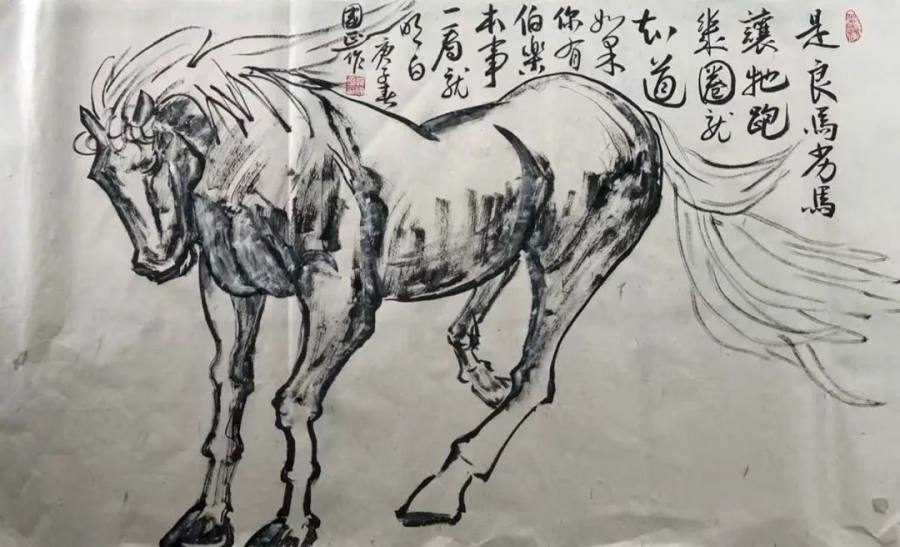 是良馬劣馬
讓牠跑
幾圈就
知道
如果
你有
伯樂
本事
一看就
明白
庚子春
國正作